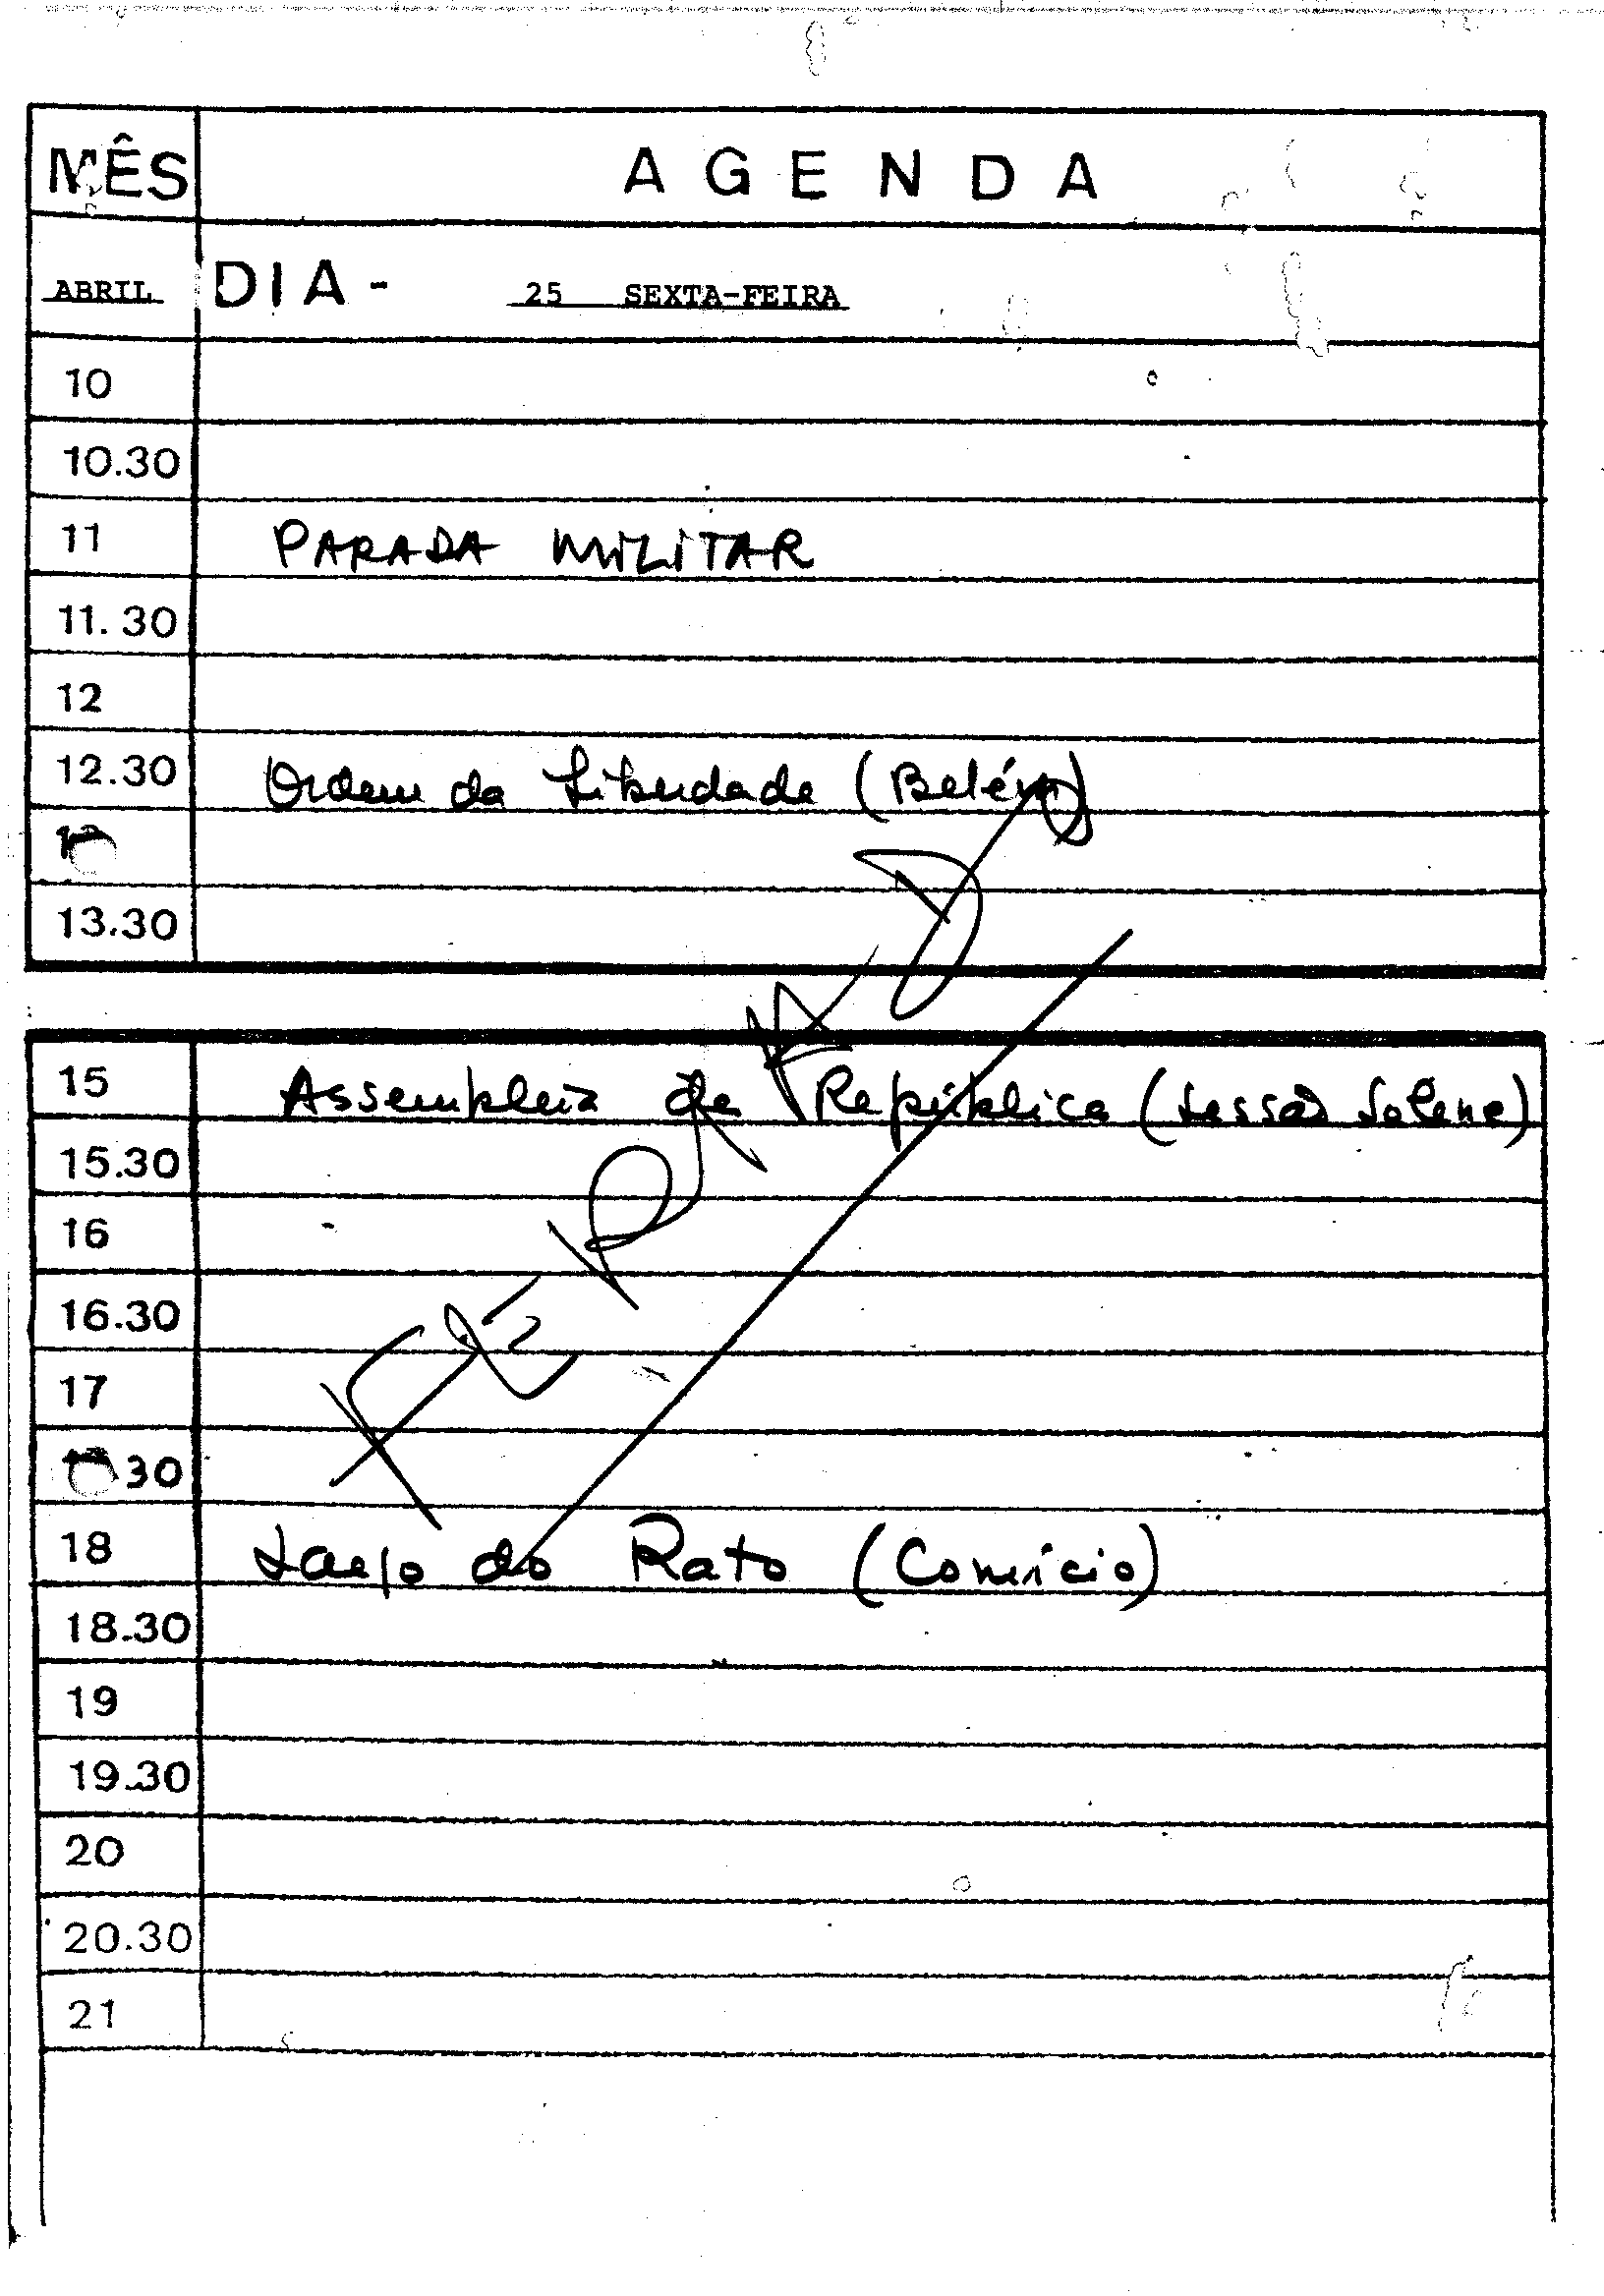 MÊS AGENDA
ABRIL DIA - 25 SEXTA-FEIRA
10
10.30
11 PARADA MILITAR
11.30
12
12.30 Ordem da Liberdade (Belém)
13.30
15 Assembleia da República (Sessão Solene)
15.30
16
16.30
17
30
18 Largo do Rato (Comício)
18.30
19
19.30
20
20.30
21
FERIADO